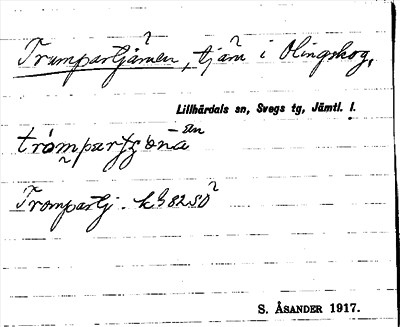 Trumpartjärnen, tjärn i Olingskog,
Lillhärdals sn, Svegs tg, Jämtl. l.
Trompartj. kb 82 SO
S. ÅSANDER 1917.